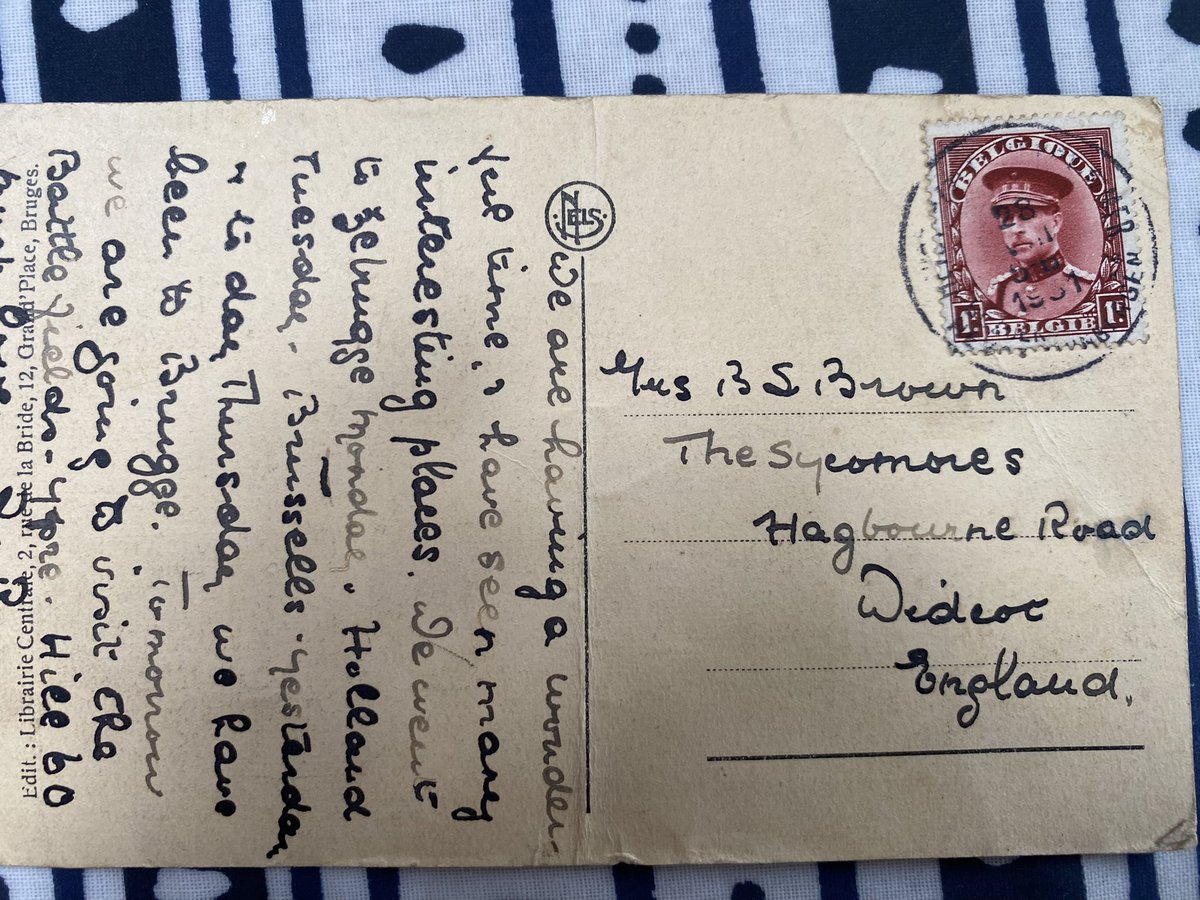 We are having a wonder-
ful time, & have seen many
interesting places. We went
to Zebrugge monday. Holland
Tuesday - Brussells - yesterday
& to day Thursday we have
been to Brugge. Tomorrow
we are going to visit the
Battle Fields - Ypre. Hill 60
Edit.: Librairie Centrale, 2, rue de la Bride, 12, Grand'Place, Bruges.
NELS
BELGIQUE
1F
BELGIË
1F
Mrs B S Brown
The Sycomores
Hagbourne Road
Didcot
England.